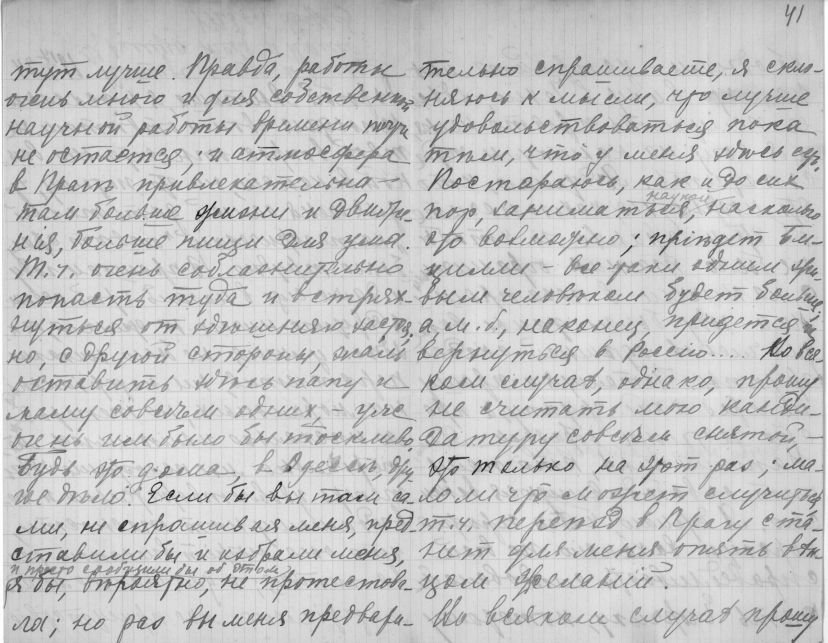 41
тут лучше. Правда, работы
очень много и для собственной
научной работы времени почти
не остается, и атмосфера
в Прагѣ привлекательна –
там больше жизни и движе-
нія, больше пищи для ума.
Т. ч. очень соблазнительно
попасть туда и встрях-
нуться от здѣшняго застоя,
но, с другой стороны, жаль
оставить здѣсь папу и
маму совсѣм одних, – уже
очень им было бы тоскливо.
Будь это дома, в Одессѣ, дру-
гое дѣло. Если бы вы там са-
ми, не спрашивая меня, пред-
ставили бы и избрали меня,
и просто сообщили бы об этом
я бы, вѣроятно, не протестова-
ла; но раз вы меня предвари-
тельно спрашиваете, я скло-
няюсь к мысли, что лучше
удовольствоваться пока
тѣм, что у меня здѣсь есть.
Постараюсь, как и до сих
наукой
пор, заниматься, насколько
это возможно; пріѣдет
– все таки одним
вым человѣком будет больше,
а м. б., наконец, придется и
вернуться в Россію.... Во вся-
ком случаѣ, однако, прошу
не считать мою канди-
датуру совсѣм снятой, –
это только на этот раз; ма-
ло ли что может случиться,
т. ч. переѣзд в Прагу ста-
нет для меня опять
цом желаній.
Во всяком случаѣ прошу